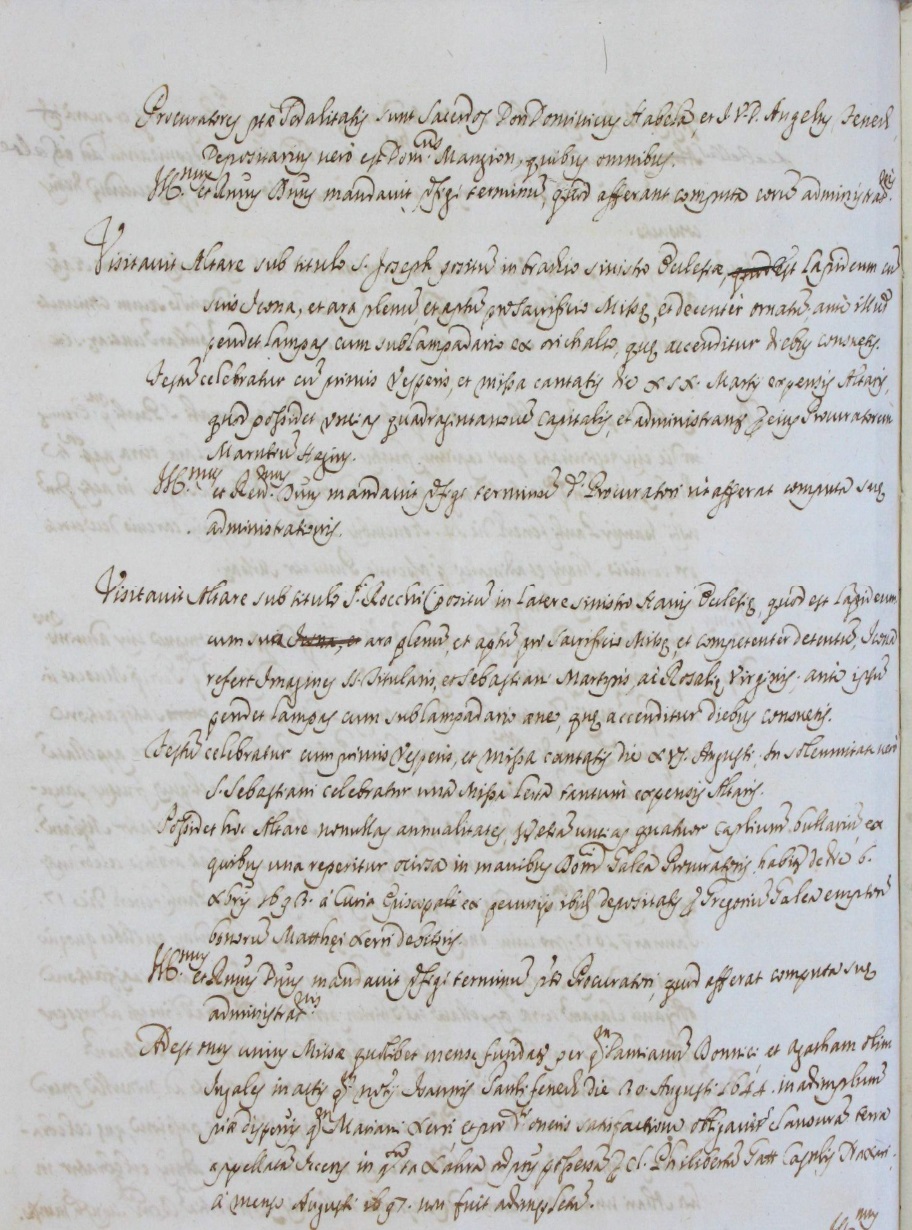 Procuratores ptæ Sodalitatis sunt Sacerdos Don Dominicus Habela, et I.V.D. Angelus Fenech,
Depositarius verò est Dom.cus Mangion, quibus omnibus.
Ill.mus et Rmus Dnus mandavit, terminũ, quod afferant computa eorũ administrat.
Visitavit Altare sub titulo S. Joseph positũ in brachio sinistro Ecclesiæ, est Lapideum cũ
suis Icona, et ara plenũ, et aptũ pro Sacrificio Missę, et decenter ornatũ, antè illud
pendet lampas cum sublampadario ex orichalco, quę accenditur diebus consuetis.
Festũ celebratur cũ primis Vesperis, et missa cantatis die XIX. Martij expensis Altaris,
quod possidet uncias quadragintanovẽ Capitalis, et administrans eius Procuratorem
Ill.mus et Rev.mus Dnus mandavit terminũ d.º Procuratori ut afferat computa suę
administrationis.
Visitavit Altare sub titulo S. Rocchi positũ in latere sinistro Ecclesię, quod est Lapideum
cum sua Icona, et ara plenũ, et aptũ pro Sacrificio Missę et competenter detentũ, Icona
refert Imagines SS. Titularis, et Sebastiani Martyris, ac Rosalię Virginis. antè istũ
pendet lampas cum sublampadario æneo, quę accenditur diebus consuetis.
Festũ celebratur cum primis Vesperis, et Missa cantatis die XVJ. Augusti. In solemnitate verò
S. Sebastiani celebratur una Missa lecta tantum expensis Altaris.
Possidet hoc Altare nonullas annualitates, uncias quatuor
quibus una reperitur in manibus Dom.ci Galea Procuratoris, habita de die 6.
Xbris 1693. à Curia Episcopali ex pecunijs ibidẽ depositatis Gregoriũ Galea emptorẽ
bonorũ Matthęi Xerri debitoris.
Ill.mus et Rmus Dnus mandavit terminũ pto Procuratori, quod afferat computa suę
administrat.nis
Adest onus unius Missæ quolibet mense fundatũ per qm Damianũ Bonnici, et Agatham olim
Jugales in actis qm Notrij Joannis Pauli Fenech die 20. Augusti 1644. in adimplemẽ
piæ disponis qm Mariani Xerri et pro d.i oneris satisfactione obligavit Clausurã terræ
appellatã in ta Xahra possessã Cl. Philibertũ Gatt Capitis Naxari.
à mense Augusti 1697. non fuit adimpletũ.